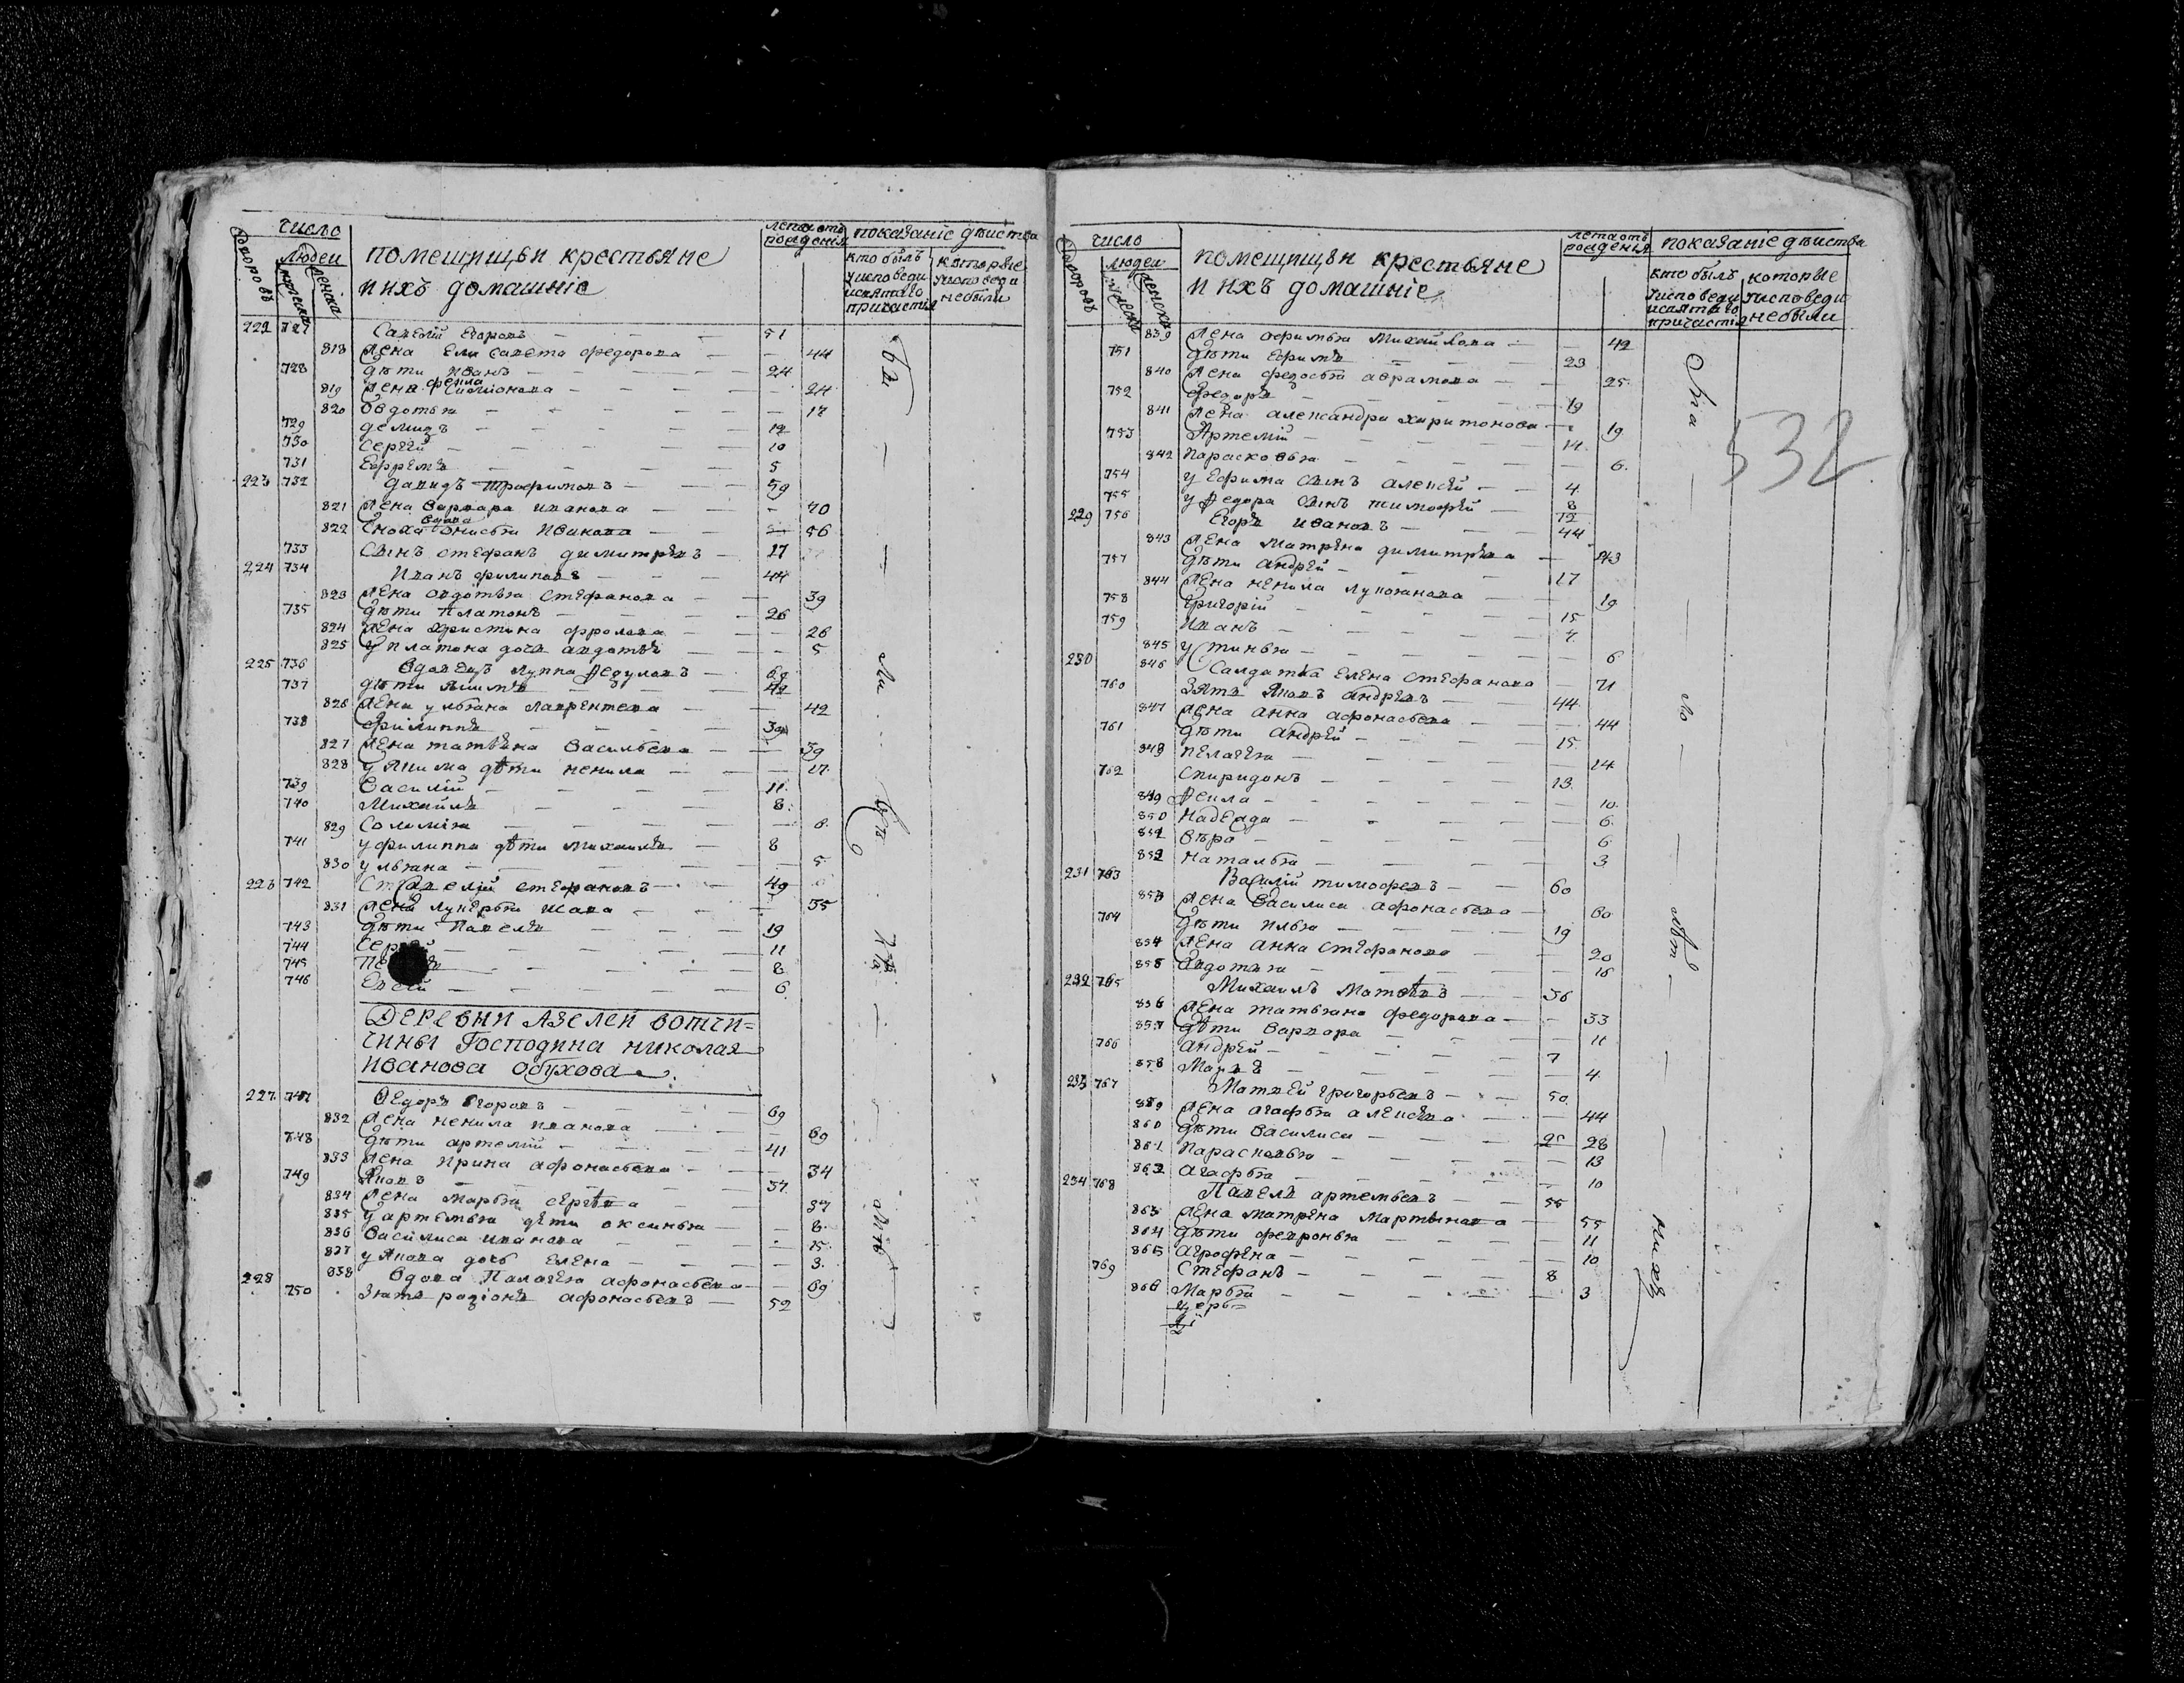 число
дворовъ
людеи
мужеска
женска
помещищьи крестьяне
и ихъ домашнiе
лета отъ
рожденiя
показанiе дѣиства
кто былъ
у исповеди
и святаго
причастiя
которые
у исповеди
небыли
222 727 Савелiй Егоровъ 51
818 Жена Елисавета федорова 44
728 дѣти Иванъ 24
819 Жена фекла Симионова 24
820 Овдотья 17
729 демидъ 12
730 Сергѣй 10
731 Ефремъ 5
223 732 давидъ трофимовъ 59
821 Жена варвара иванова 70
822 Сноха вдова Анисья Иванова 56
733 Сынъ стефанъ димитрѣвъ 17
224 734 Иванъ филиповъ 44
823 Жена овдотья стефанова 39
735 дѣти Платонъ 26
824 Жена христина фролова 26
825 У платона дочь авдотья 5
225 736 Вдовецъ луппа Федуловъ 69
737 дѣти якимъ 42
826 Жена ульяна лаврентева 42
738 филиппъ 39
827 Жена татьяна Васильева 39
828 у якима дѣти ненила 17
739 Василiй 11
740 Михайлъ 8
829 Соломiя 6
741 у филиппа дѣти михаилъ 8
830 ульяна 5
226 742 Савелiй стефановъ 49
831 Жена лукерья исаева 55
743 дѣти Павелъ 19
744 11
745 8
746 6
Деревни Азелей вотчи=
чины Господина николая
Иванова Обухова
227 747 Федоръ Егоровъ 69
832 Жена ненила иванова 69
748 дѣти артемiй 41
833 Жена Ирина афонасьева 34
749 Яковъ 37
834 Жена марья сергѣва 37
835 У артемья дѣти оксинья 8
836 Василиса иванова 15
837 у Якова дочь Елена 3
228 838 Вдова Палагея афонасьева 69
750 Зять родiонъ афонасьевъ 52
число
дворовъ
людеи
мужеска
женска
помещищьи крестьяне
и ихъ домашнiе
лета отъ
рожденья
показанiе дѣиства
кто былъ
у исповеди
и святаго
причастiя
которые
у исповеди
небыли
532
839 Жена офимья Михайлова 42
751 дѣти Ефимъ 23
840 Жена федосья аврамова 25
752 Федоръ 19
841 Жена александра харитонова 19
753 Артемiй 14
842 Парасковья 6
754 у Ефима сынъ алексѣй 4
755 у Федора сынъ тимофѣй 8
229 756 Егоръ ивановъ 44
843 Жена матрена димитрѣва 43
757 дѣти андрѣй 17
844 Жена ненила лукоянова 19
758 григорiй 15
759 Иванъ 7
845 устинья 6
230 846 Салдатка елена стефанова 71
760 Зять Яковъ андрѣвъ 44
847 Жена анна афонасьева 44
761 дѣти андрѣй 15
848 пелагея 14
762 спиридонъ 13
849 Фекла 10
850 надежда 6
851 вѣра 6
852 наталья 3
231 763 Василiй тимофевъ 60
853 Жена василиса афонасьева 60
764 дѣти илья 19
854 Жена анна стефанова 20
855 Евдотья 16
232 765 Михаилъ матвѣвъ 36
856 Жена татьяна федорова 33
857 дѣти варвара 11
766 андрѣй 7
858 4
233 767 Матвей григорьевъ 50
859 Жена агафья алексѣва 44
860 дѣти василиса 28
861 Парасковья 13
862 агафья 10
234 768 Павелъ артемьевъ 55
863 Жена матрена мартынова 55
864 дѣти февронья 11
865 агрофена 10
769 Стефанъ 8
866 Марья 3